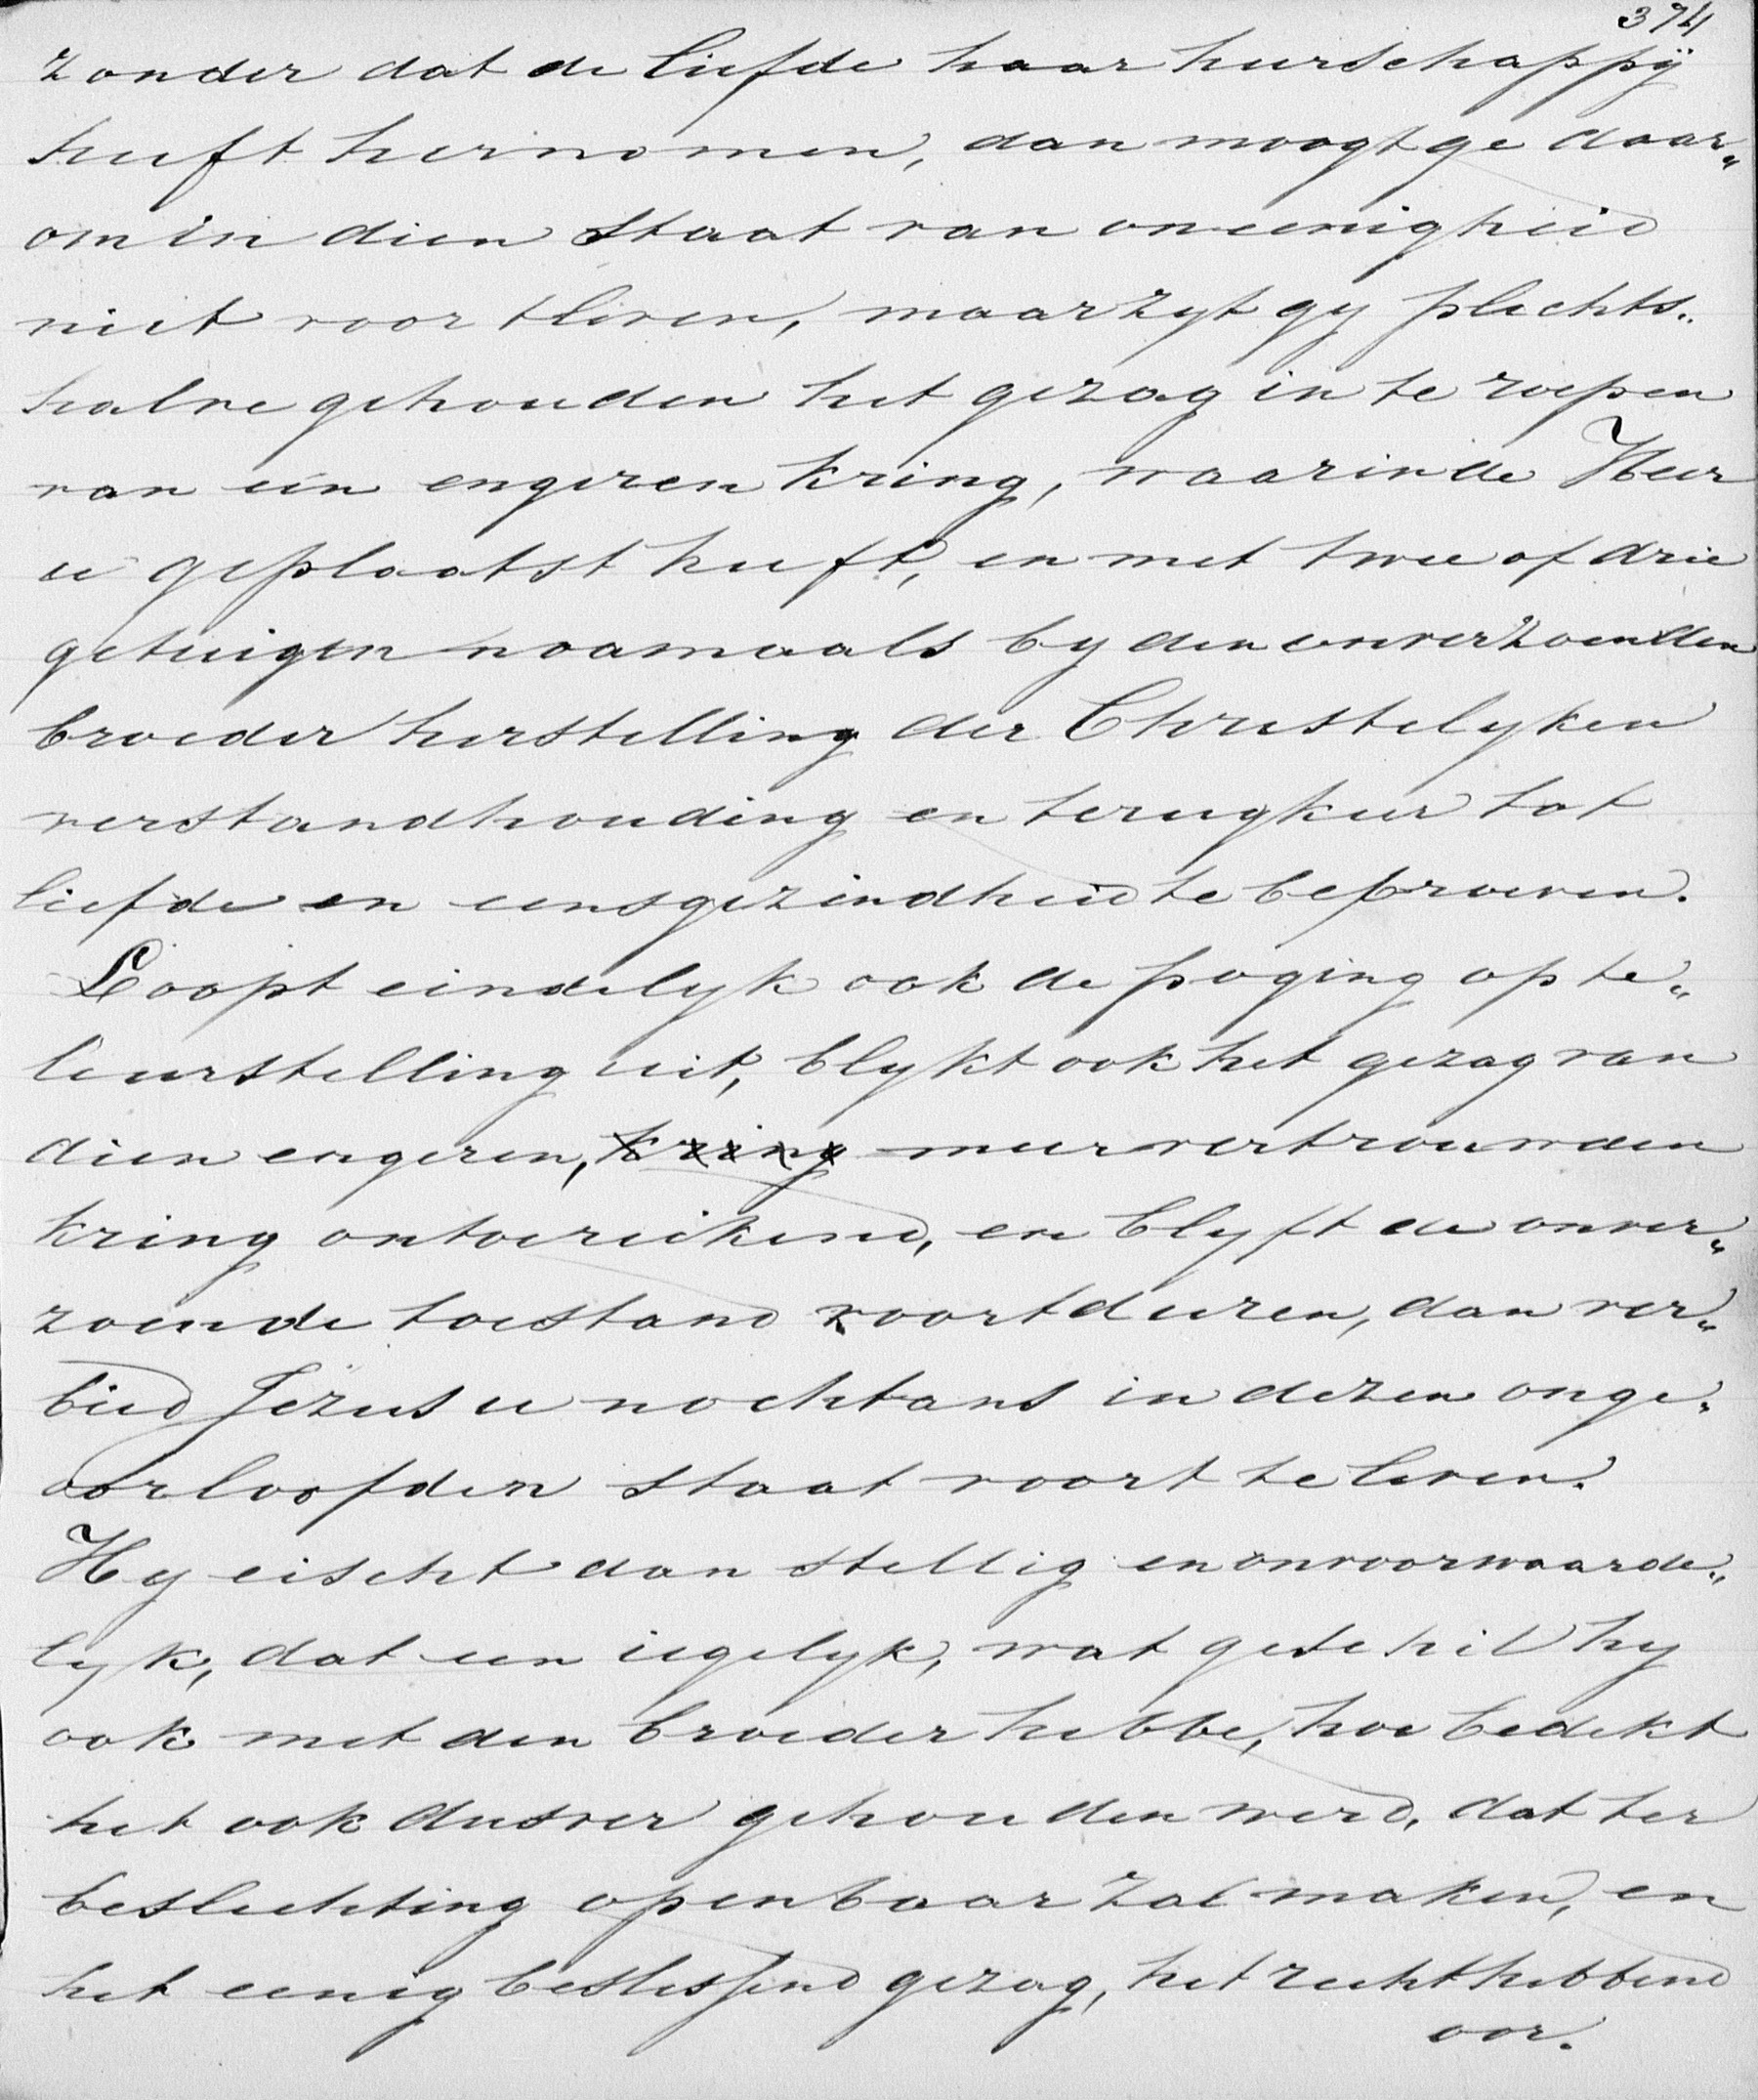 374
zonder dat de liefde haar heerschappÿ
heeft hernomen, dan moogt ge daar„
om in dien staat van oneenigheid
niet voortleven, maar zyt gy plichts„
halve gehouden het gezag in te roepen
van een engeren kring, waarin de Heer
u geplaatst heeft, en met twee of drie
getuigen noamaals by den onverzoenden
broeder herstelling der Christelyken
verstandhouding en terugkeer tot
liefde en eensgezindheid te beproeven.
Loopt eindelyk ook de poging op te„
leurstelling uit, blykt ook het gezag van
dien engeren, kring meer vertrouwden
kring ontoereikend, en blyft de onver„
zoende toestand voortduren, dan ver„
bied Jezus u nochtans in dezen onge„
oorloofden staat voort te leven.
Hy eischt dan stellig en onvoorwaarde„
lyk, dat een iegelyk, wat geschil hy
ook met den broeder hebbe, hoe bedekt
het ook dusver gehouden werd, dat ter
beslechting openbaar zal maken, en
het eenig beslissend gezag, het rechthebbend
oor.